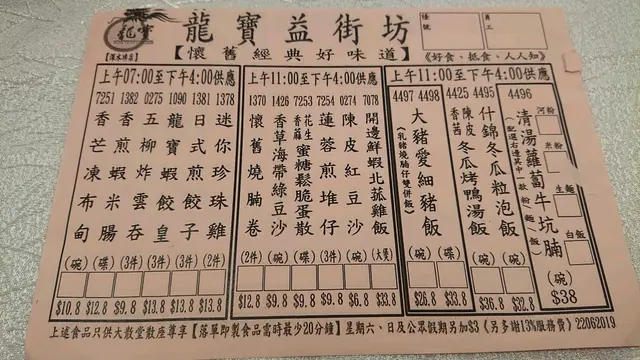 龍寶
【深水埗店】
龍寶益街坊
【懷舊經典好味道】
檯號
員工
《好食、抵食、人人知》
上午07:00至下午4:00供應
7251 香芒凍布甸 (碗) $10.8
1382 香煎蝦米腸 (碟) $12.8
0275 五柳炸雲吞 (3件) $9.8
1090 龍寶蝦餃皇 (3件) $13.8
1381 日式煎餃子 (3件) $13.8
1378 迷你珍珠雞 (2件) $13.8
上午11:00至下午4:00供應
1370 懷舊燒腩卷 (2件) $12.8
1426 香草海帶綠豆沙 (碗) $9.8
7253 花生蜜糖鬆脆蛋散 (3件) $9.8
7254 蓮蓉煎堆仔 (3件) $9.8
0274 陳皮紅豆沙 (碗) $6.8
7078 開邊鮮蝦北菇雞飯 (大煲) $33.8
上午11:00至下午4:00供應
4497 4498 大豬愛細豬飯 (乳豬燒腩仔雙併飯) (碗) $26.8 (碟) $33.8
4425 陳皮香茜冬瓜烤鴨湯飯 (碗) $36.8
4495 什錦冬瓜粒泡飯 (碗) $32.8
4496 清湯蘿蔔牛坑腩 (配選右邊其中一款粉/麵/飯) (碗) $38
河粉
米粉
生麵
白飯
上述食品只供大散堂散座尊享【落單即製食品當時最少20分鐘】星期六、日及公眾假期另加$3《另多謝13%服務費》22062019